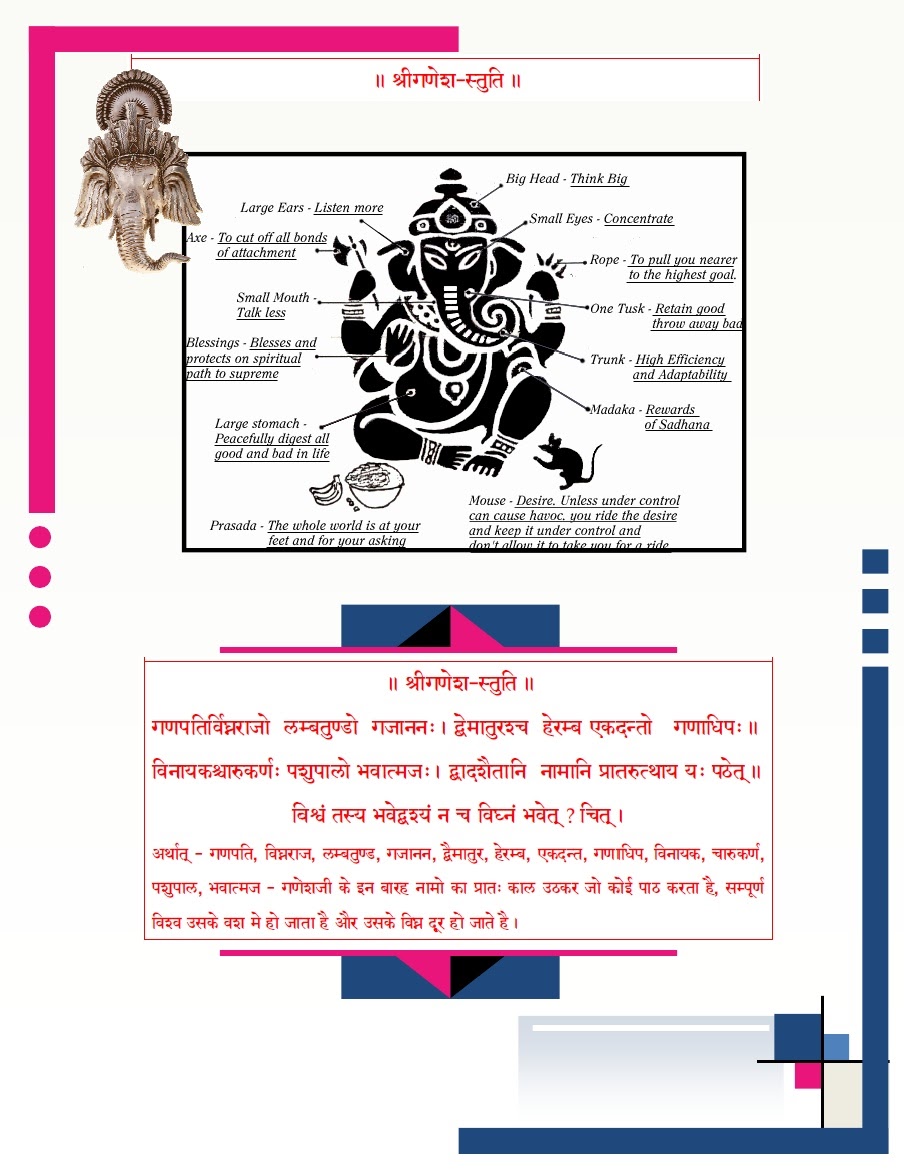 ॥ श्रीगणेश-स्तुति ॥
Big Head - Think Big
Large Ears - Listen more
Small Eyes - Concentrate
Axe - To cut off all bonds
of attachment
Rope - To pull you nearer
to the highest goal.
Small Mouth -
Talk less
One Tusk - Retain good
throw away bad
Blessings - Blesses and
protects on spiritual
path to supreme
Trunk - High Efficiency
and Adaptability
Madaka - Rewards
of Sadhana
Large stomach -
Peacefully digest all
good and bad in life
Mouse - Desire. Unless under control
can cause havoc. you ride the desire
and keep it under control and
don't allow it to take you for a ride
Prasada - The whole world is at your
feet and for your asking
॥ श्रीगणेश-स्तुति ॥
गणपतिर्विघ्नराजो लम्बतुण्डो गजाननः। द्वेमातुरश्च हेरम्ब एकदन्तो गणाधिपः॥
विनायकश्चारुकर्णः पशुपालो भवात्मजः। द्वादशैतानि नामानि प्रातरुत्थाय यः पठेत्॥
विश्वं तस्य भवेद्वश्यं न च विघ्नं भवेत् ? चित्।
अर्थात् - गणपति, विघ्नराज, लम्बतुण्ड, गजानन, द्वैमातुर, हेरम्ब, एकदन्त, गणाधिप, विनायक, चारुकर्ण,
पशुपाल, भवात्मज - गणेशजी के इन बारह नामो का प्रातः काल उठकर जो कोई पाठ करता है, सम्पूर्ण
विश्व उसके वश मे हो जाता है और उसके विघ्न दूर हो जाते है।